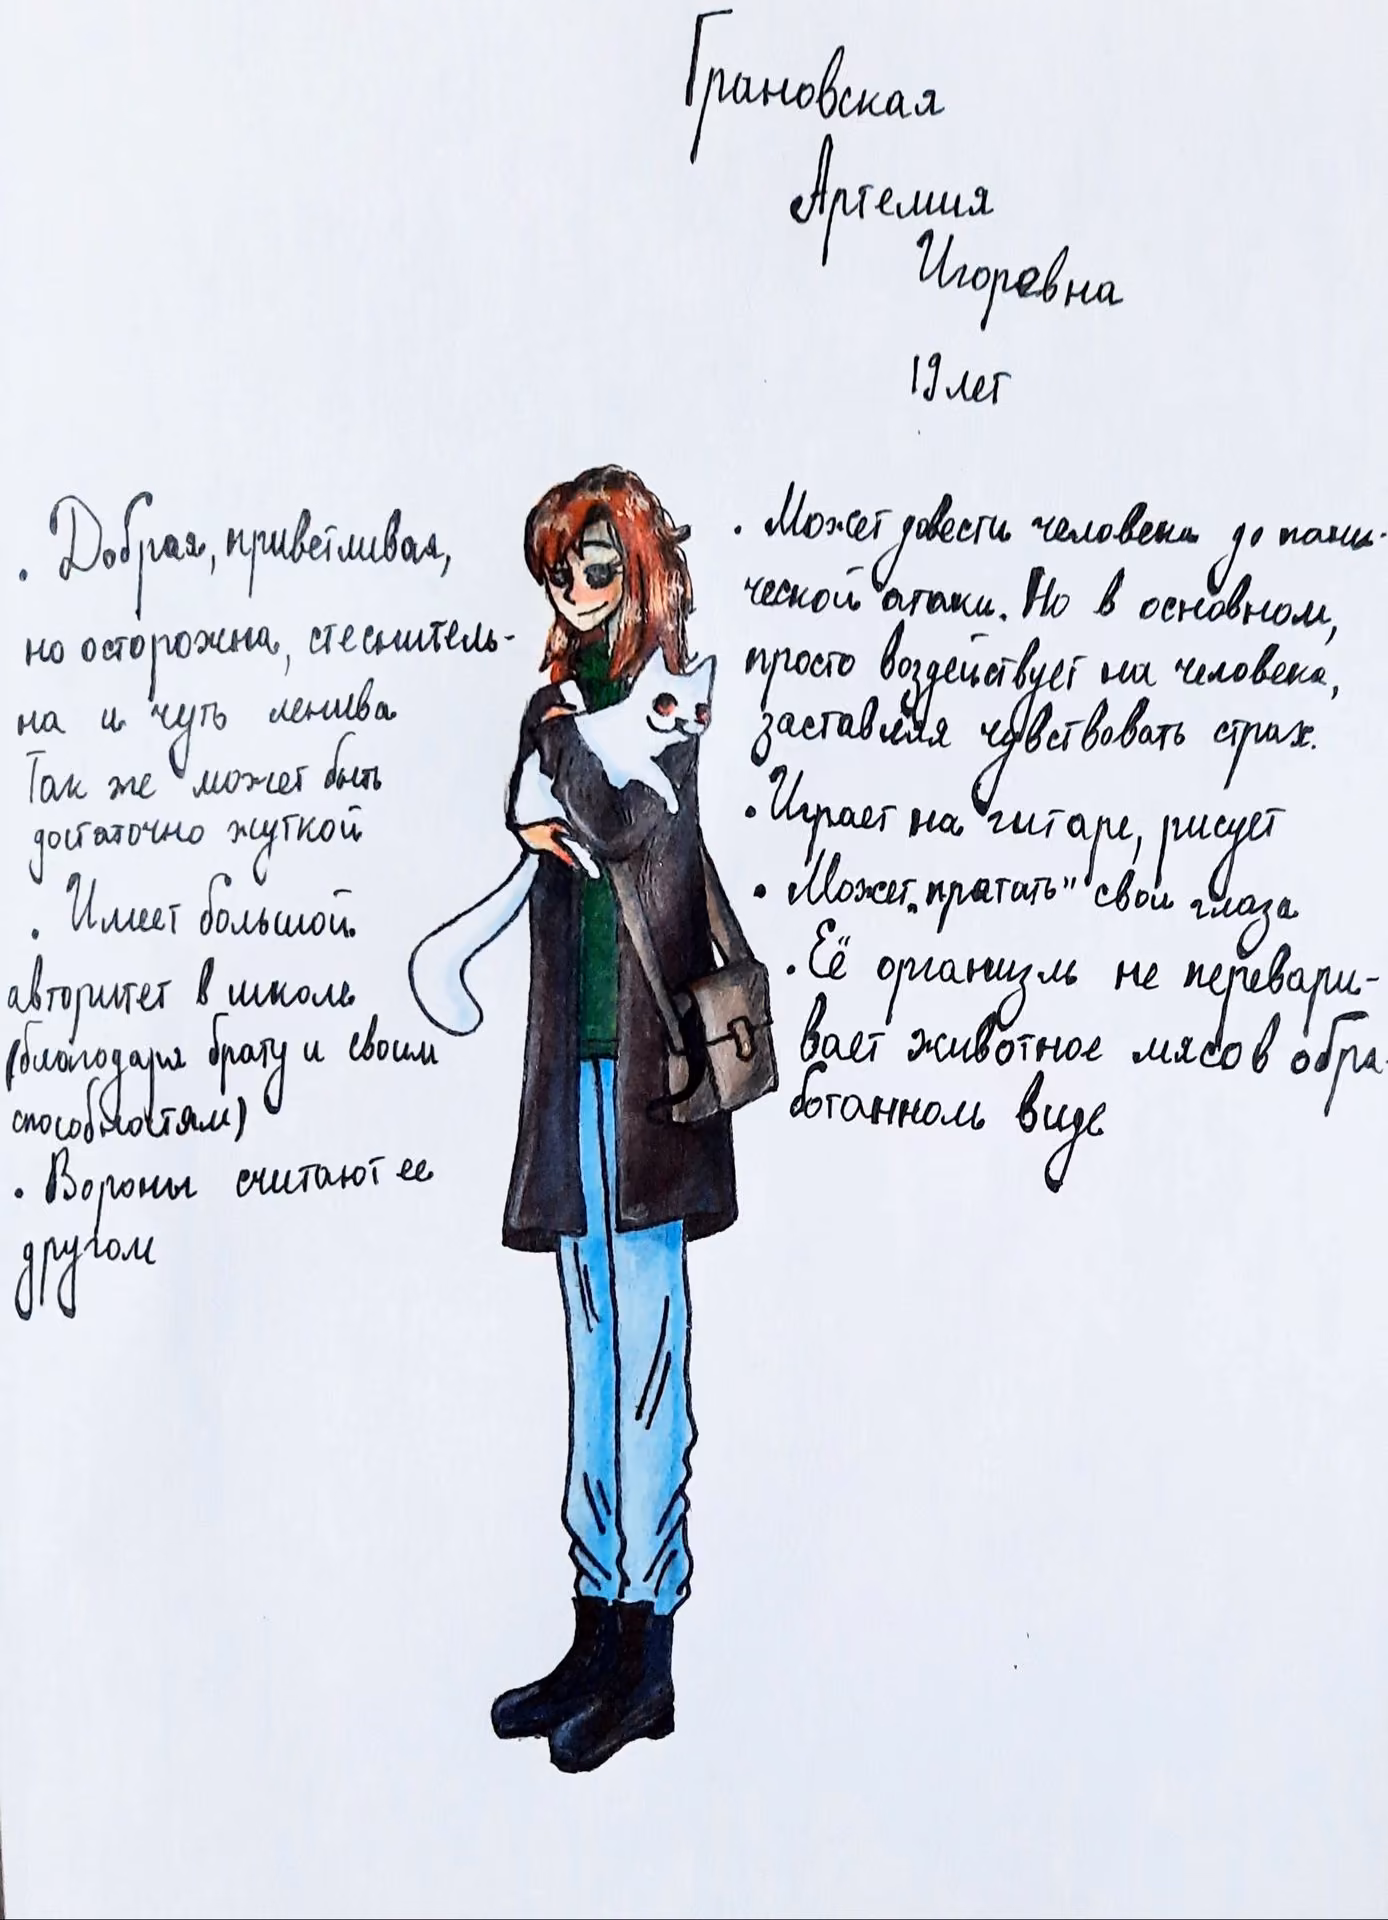 Грановская
Артемия
Игоревна
19 лет
• Добрая, приветливая,
но осторожна, стеснитель-
на и чуть ленива
Так же может быть
достаточно жуткой
• Имеет большой
авторитет в школе
(благодаря брату и своим
способностям)
• Вороны считают ее
другом
• Может довести человека до пани-
ческой атаки. Но в основном,
просто воздействует на человека,
заставляя чувствовать страх.
• Играет на гитаре, рисует
• Может „прятать" свои глаза
• Её организм не перевари-
вает животное мясо в обра-
ботанном виде